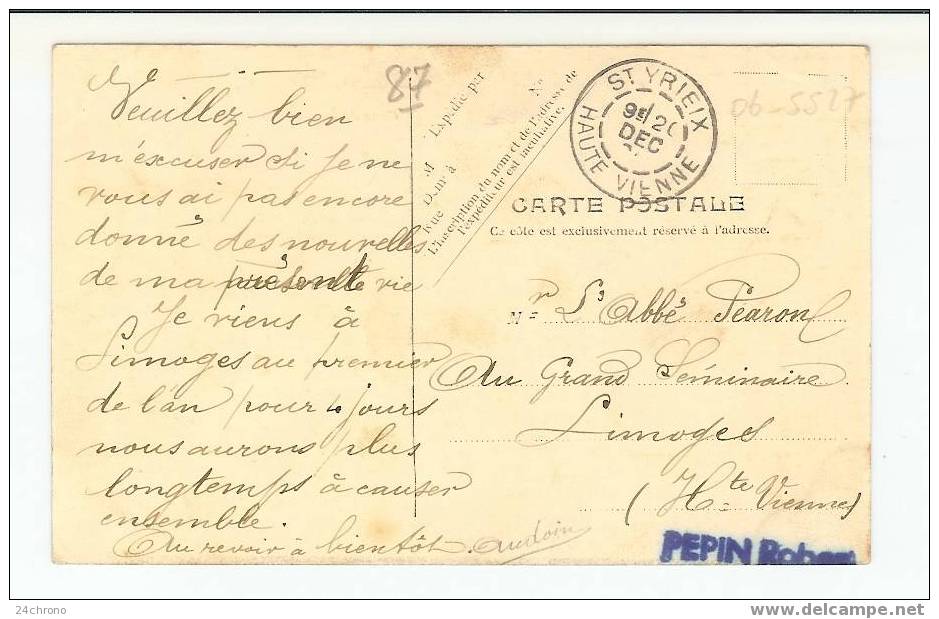 Veuillez bien
m'excuser si je ne
vous ai pas encore
donné des nouvelles
de ma présente vie
Je viens à
Limoges au premier
de l'an pour 4 jours
nous aurons plus
longtemps à causer
ensemble.
Au revoir à bientôt. Audoin
87
M
Expédié par
Demt à
Rue
No
L'inscription du nom et de l'adresse de
l'expéditeur est facultative.
ST YRIEX
20
DEC
HAUTE VIENNE
06-5527
CARTE POSTALE
Ce côté est exclusivement réservé à l'adresse.
Mr L'Abbé Péaron
Au Grand Séminaire
Limoges
(Hte Vienne)
PEPIN Robert
24chrono
www.delcampe.net